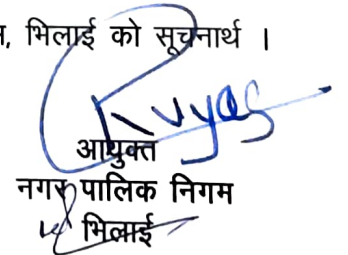 , भिलाई को सूचनार्थ ।
Rvyas
आयुक्त
नगर पालिक निगम
भिलाई